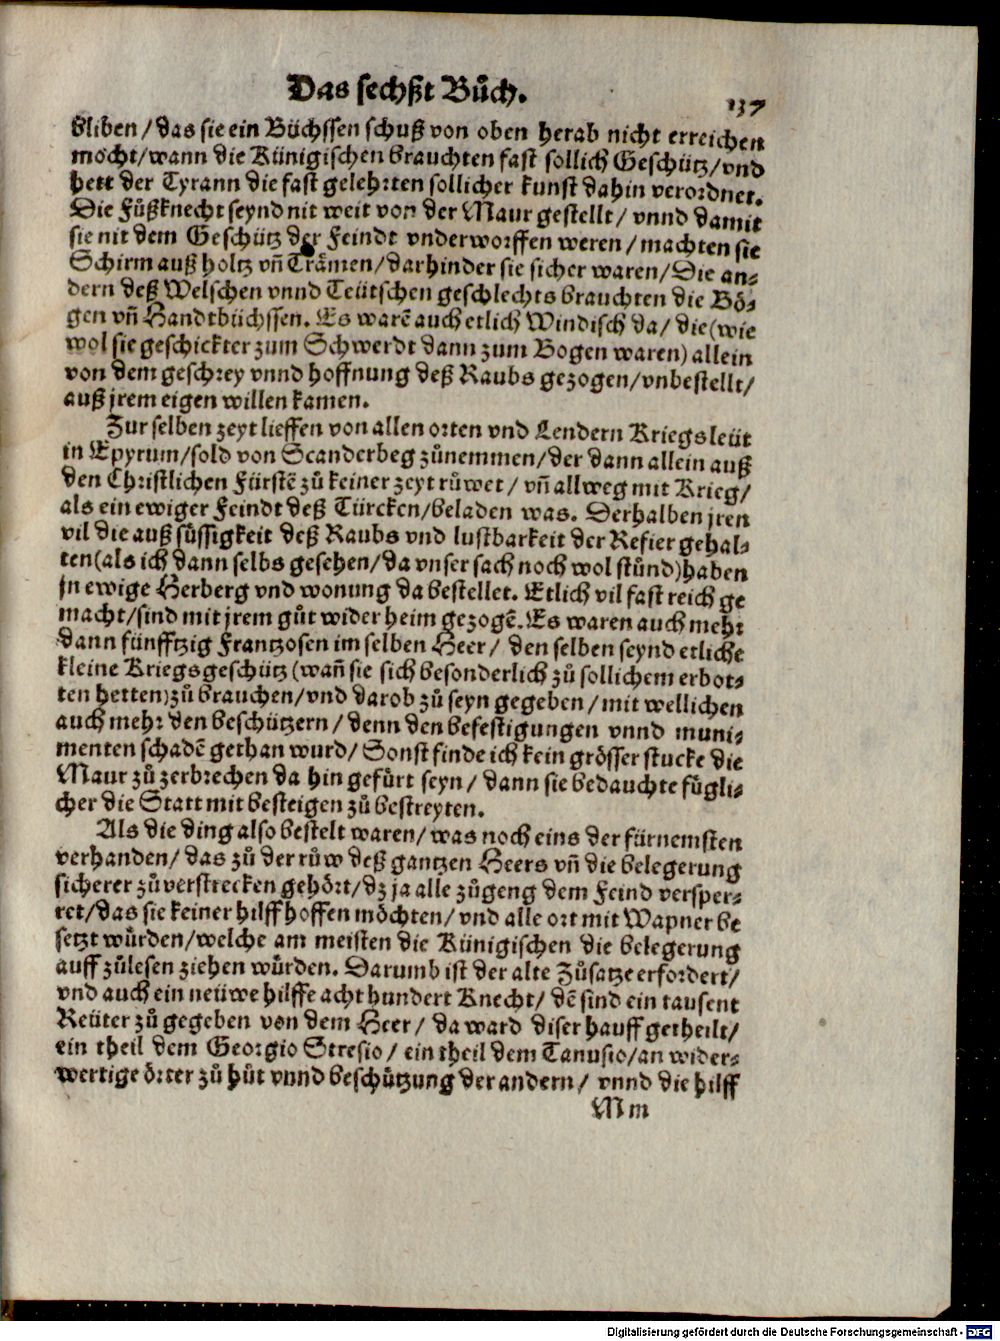 Das sechßt Bůch.
137
bliben / das sie ein Büchssen schuß von oben herab nicht erreichen
möcht / wann die Künigischen brauchten fast sollich Geschütz / vnd
hett der Tyrann die fast gelehrten sollicher kunst dahin verordnet.
Die Fůßknecht seynd nit weit von der Maur gestellt / vnnd damit
sie nit dem Geschütz der Feindt vnderworffen weren / machten sie
Schirm auß holtz vñ Trämen / darhinder sie sicher waren / Die an-
dern deß Welschen vnnd Teütschen geschlechts brauchten die Bö-
gen vñ Handtbüchssen. Es warē auch etlich Windisch da / die (wie
wol sie geschickter zum Schwerdt dann zum Bogen waren) allein
von dem geschrey vnnd hoffnung deß Raubs gezogen / vnbestellt /
auß jrem eigen willen kamen.
Zur selben zeyt lieffen von allen orten vnd Lendern Kriegsleüt
in Epyrum / sold von Scanderbeg zůnemmen / der dann allein auß
den Christlichen Fürstē zů keiner zeyt růwet / vñ allweg mit Krieg /
als ein ewiger Feindt deß Türcken / beladen was. Derhalben jren
vil die auß süssigkeit deß Raubs vnd lustbarkeit der Refier gehal-
ten (als ich dann selbs gesehen / da vnser sach noch wol stůnd) haben
jn ewige Herberg vnd wonung da bestellet. Etlich vil fast reich ge
macht / sind mit jrem gůt wider heim gezogē. Es waren auch mehr
dann fünfftzig Frantzosen im selben Heer / den selben seynd etliche
kleine Kriegsgeschütz (wañ sie sich besonderlich zů sollichem erbot-
ten hetten) zů brauchen / vnd darob zů seyn gegeben / mit wellichen
auch mehr den beschützern / denn den befestigungen vnnd muni-
menten schadē gethan wurd / Sonst finde ich kein grösser stucke die
Maur zů zerbrechen da hin gefůrt seyn / dann sie bedauchte fůgli-
cher die Statt mit besteigen zů bestreyten.
Als die ding also bestelt waren / was noch eins der fürnemsten
verhanden / das zů der růw deß gantzen Heers vñ die belegerung
sicherer zů verstrecken gehört / dz ja alle zůgeng dem Feind versper-
ret / das sie keiner hilff hoffen möchten / vnd alle ort mit Wapner be
setzt würden / welche am meisten die Künigischen die belegerung
auff zůlesen ziehen würden. Darumb ist der alte Zůsatze erfordert /
vnd auch ein neüwe hilffe acht hundert Knecht / dē sind ein tausent
Reüter zů gegeben von dem Heer / da ward diser hauff getheilt /
ein theil dem Georgio Stresio / ein theil dem Tanusio / an wider-
wertige örter zů hůt vnnd beschützung der andern / vnnd die hilff
Mm
Digitalisierung gefördert durch die Deutsche Forschungsgemeinschaft - DFG